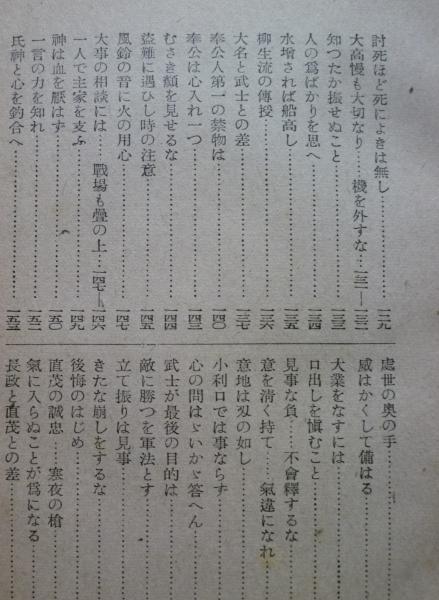 討死ほど死によきは無し……一二九
大高慢も大切なり……機を外すな…一三一―一三二
知つたか振せぬこと……一三三
人の爲ばかりを思へ……一三四
水增されば船高し……一三五
柳生流の傳授……一三六
大名と武士との差……一三七
奉公人第一の禁物は……一四〇
奉公は心入れ一つ……一四三
むさき顏を見せるな……一四四
盜難に遇ひし時の注意……一四五
風鈴の音に火の用心……一四七
大事の相談には……戰場も疊の上…一四七―一四六
一人で主家を支ふ……一四九
神は血を厭はす……一五〇
一言の力を知れ……一五二
氏神と心を釣合へ……一五三
處世の奧の手……
威はかくして備はる……
大業をなすには……
口出しを愼むこと……
見事な負……不會釋するな……
意を淸く持て……氣違になれ……
意地は刄の如し……
小利口では事ならず……
心の問はゞいかゞ答へん……
武士が最後の目的は……
敵に勝つを軍法とす……
立て振りは見事……
きたな崩しをするな……
後悔のはじめ……
直茂の誠忠……寒夜の槍……
氣に入らぬことが爲になる……
長政と直茂との差……